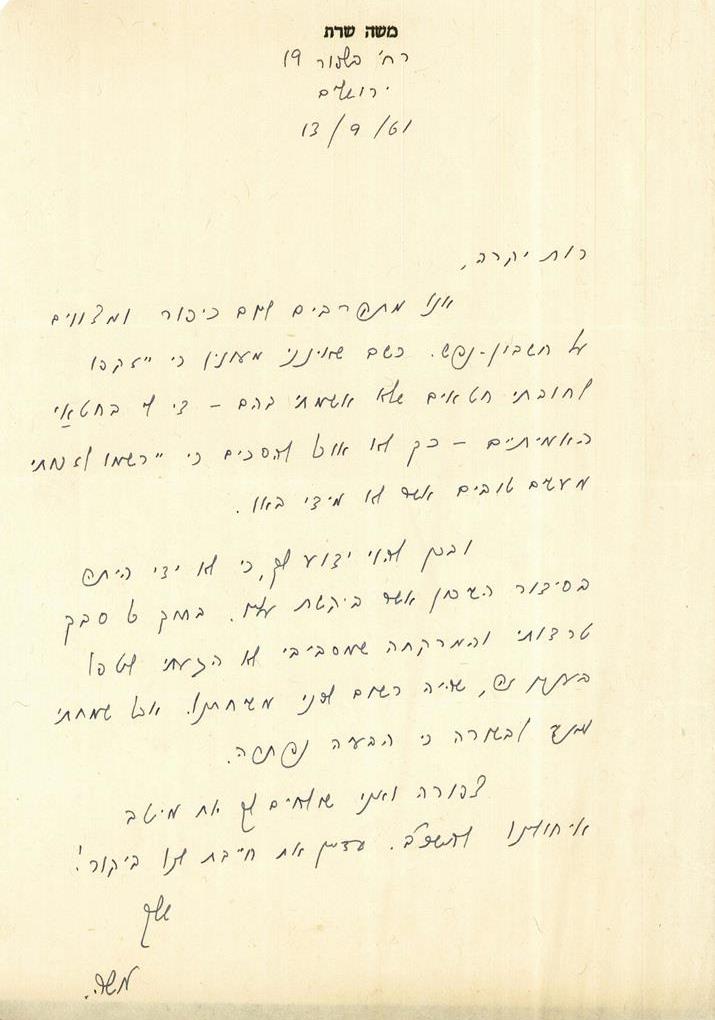 משה שרת
רח׳ בלפור 19
ירושלים
13/9/61
רות יקרה,
אנו מתקרבים ליום כיפור ומצווים
על חשבון-נפש. כשם שאינני מעונין כי ייזקפו
לחובתי חטאים שלא אשמתי בהם – די לי בחטאַי
האמיתיים – כך לא אוכל להסכים כי יירשמו לזכותי
מעשים טובים אשר לא מידי באו.
ובכן להוי ידוע לך, כי לא ידי היתה
בסידור השיכון אשר ביקשת עליו. בתוך כל סבך
טרדותי והמרקחה שמסביבי לא הגעתי לטפל
בענין זה, שהיה רשום לפני משיחתנו. אבל שמחתי
מאוד לבשורה כי הבעיה נפתרה.
צפורה ואני שולחים לך את מיטב
איחולינו לתשכ״ב. עדיין את חייבת לנו ביקור!
שלך
משה.